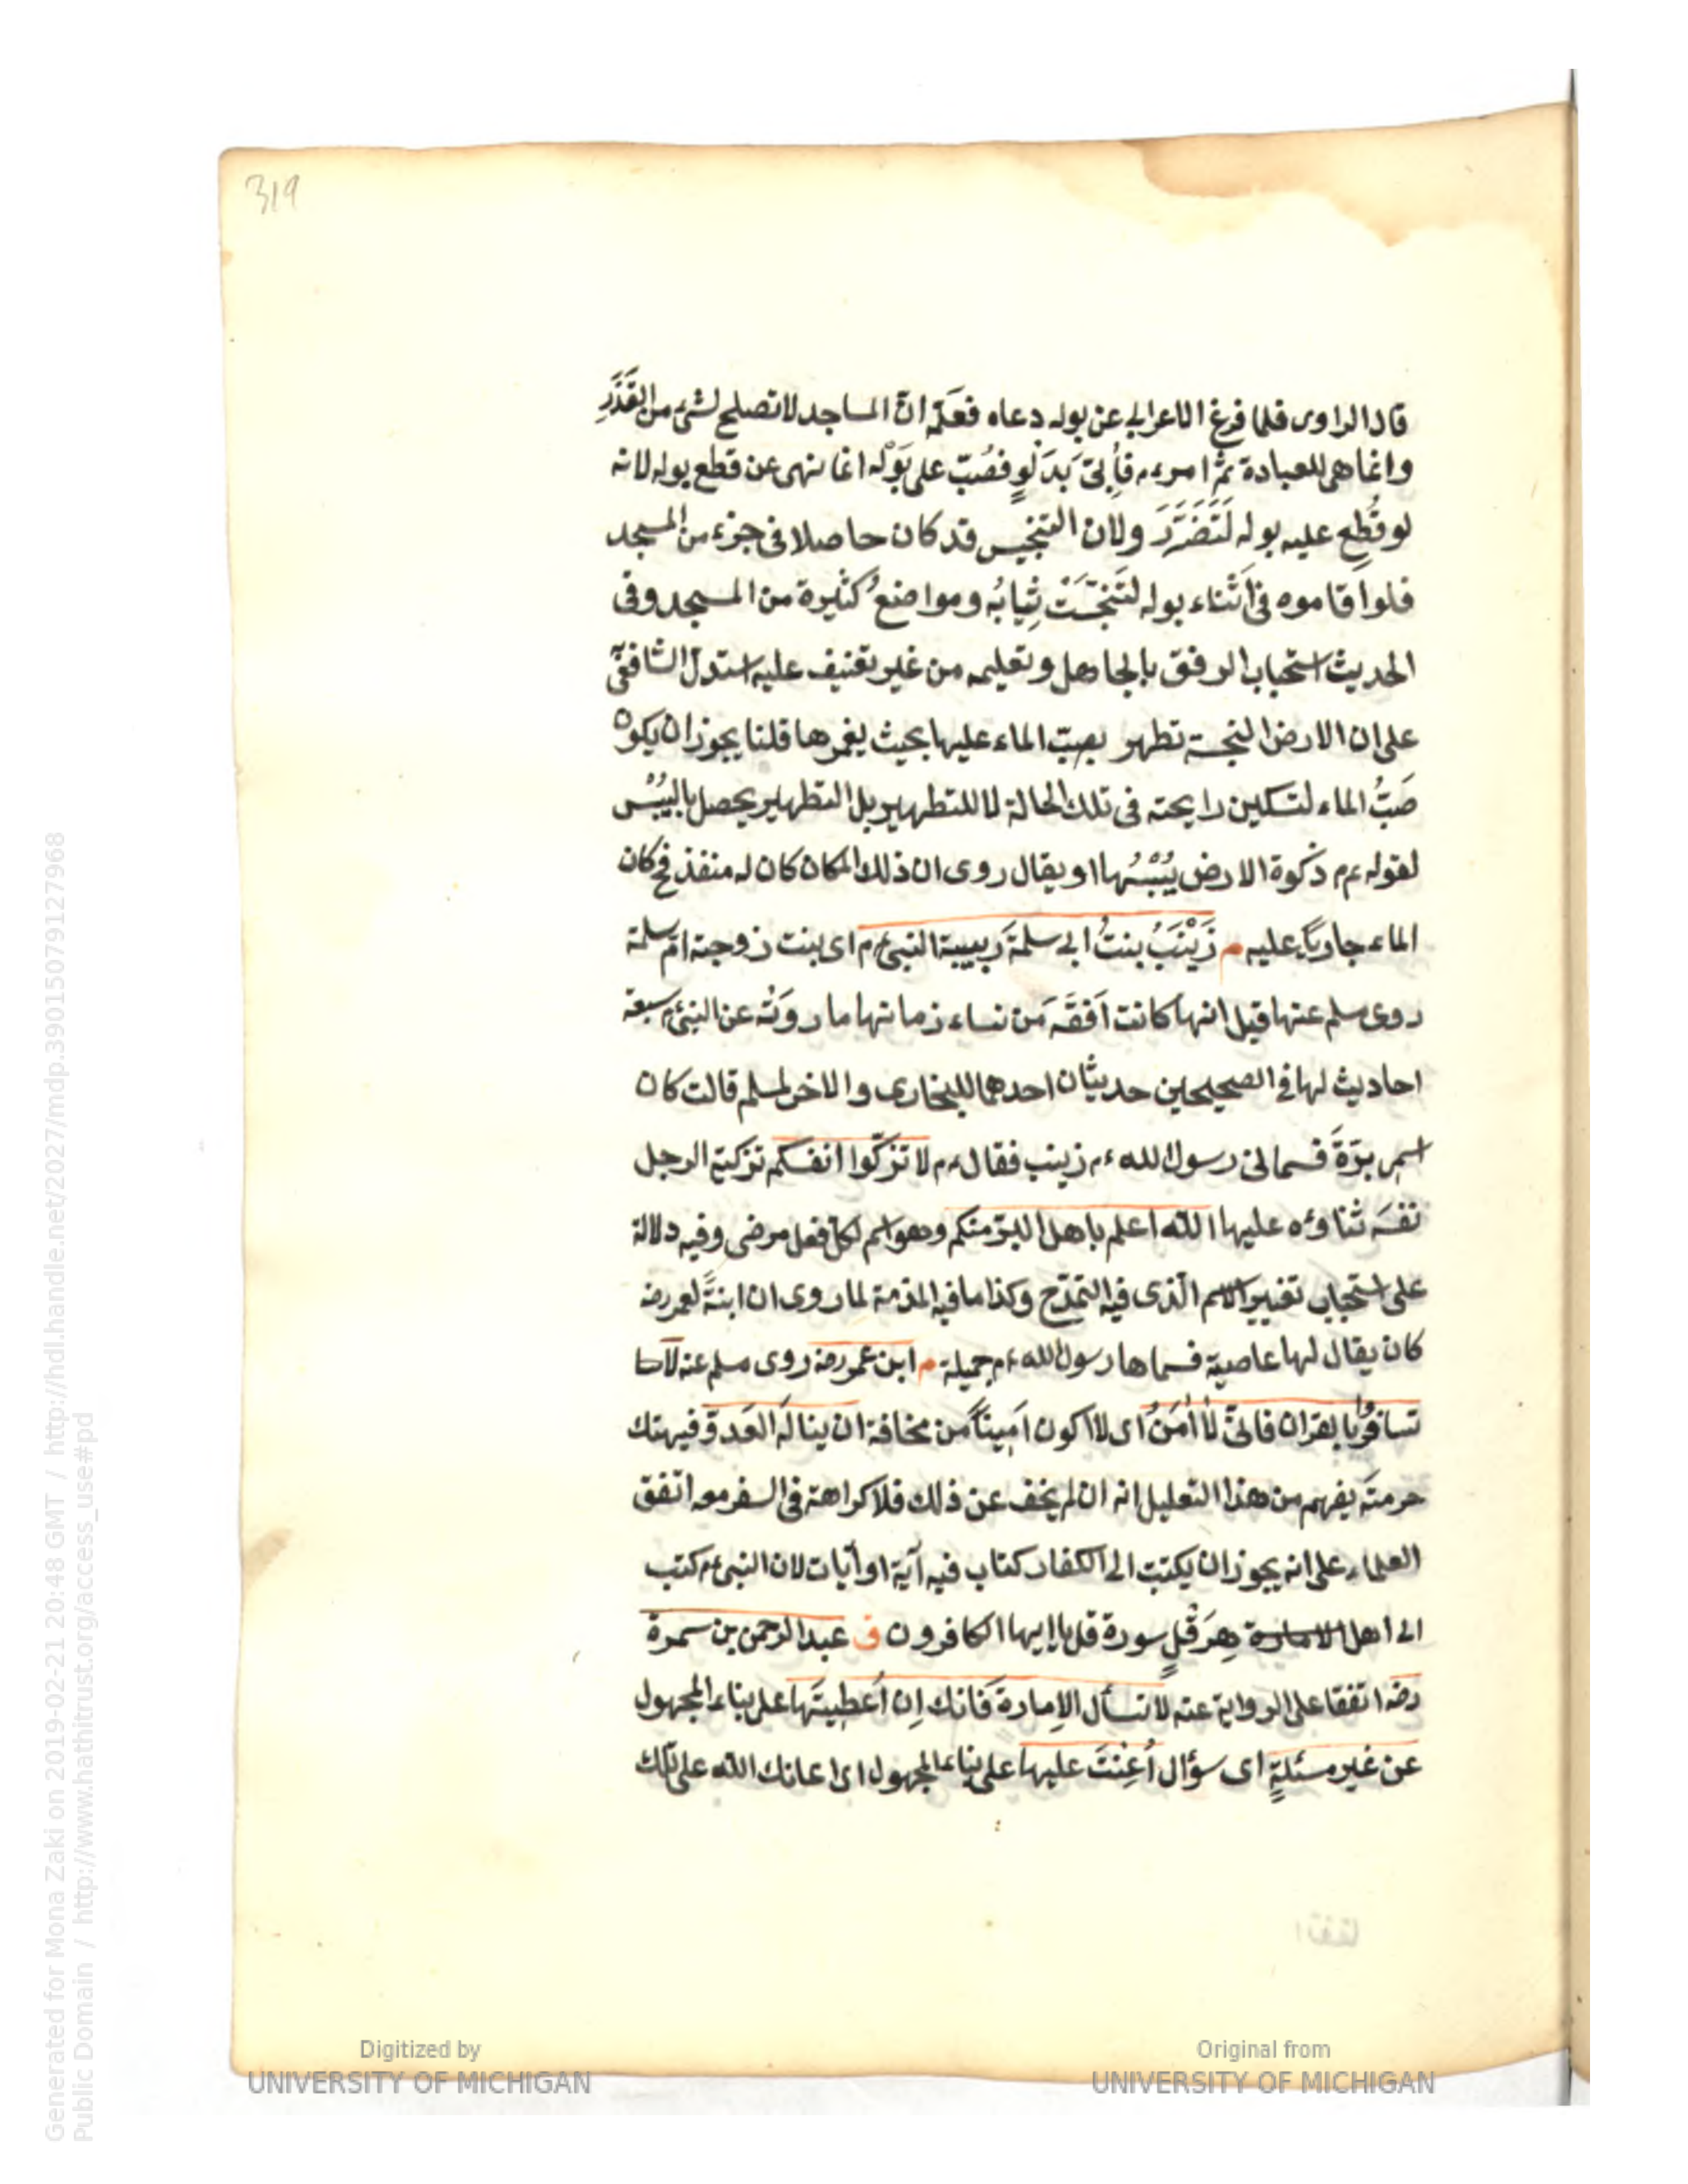 319
قال الراوى فلما فرغ الاعرابى عن بوله دعاه فعلّمه انّ المساجد لا تصلح لشئ من القَذَرِ
وانما هى للعبادة ثمّ امر ءم فاُتىَ بدَلْوٍ فصُبّ على بَوْله انما نهى عن قطع بوله لانه
لو قُطِع عليه بوله لَتَضَرَّرَ ولان التنجيس قد كان حاصلا فى جزء من المسجد
فلو اقاموه فى اَثْناء بوله لتَنَجَّسَتْ ثِيابُه ومواضعُ كثيرة من المسجد وفى
الحديث استحباب الرفق بالجاهل وتعليمه من غير تعنيف عليه استدلّ الشافعىّ
على ان الارض النجسة تطهر بصبّ الماء عليها بحيث يغمرها قلنا يجوز ان يكون
صَبُّ الماء لتسكين رايحته فى تلك الحالة لا للتطهير بل التطهير يحصل باليُبْس
لقوله ءم ذكوة الارض يُبْسُها او يقال روى ان ذلك المكان كان له منفذ فح كان
الماء جاريًا عليه م زَيْنَبُ بنتُ ابى سلمةَ رَبيبة النبى ءم اى بنت زوجته امّ سلمة
روى مسلم عنها قيل انها كانت اَفقَه من نساء زمانها ما روَتْه عن النبى ءم سبعة
احاديث لها فى الصحيحين حديثان احدهما للبخارى والاخر لمسلم قالت كان
اسمى برّةَ فسمانى رسول الله ءم زينب فقال ءم لا تزكّوا انفسكم تزكية الرجل
نفسَه ثناؤه عليها الله اعلم باهل البرّ منكم وهو اسم لكل فعل مرضى وفيه دلالة
على استحباب تغيير الاسم الّذى فيه التمدّح وكذا ما فيه المذمة لما روى ان ابنةً لعمر رضه
كان يقال لها عاصية فسماها رسول الله ءم جميلة م ابن عمر رضه روى مسلم عنه لا
تسافرُوا بالقران فانىّ لا اٰمَنُ اى لا اكون اَمِيناً من مخافة ان ينالَه العَدوّ فيهتك
حرمتَه يفهم من هذا التعليل انه ان لم يخف عن ذلك فلا كراهة فى السفر معه اتفق
العلماء على انه يجوز ان يكتب الى الكفار كتاب فيه آية او آيات لان النبى ءم كتب
الى اهل هِرَقْلٍ سورة قل يا ايها الكافرون ق عبد الرحمن بن سمرة
رضه اتفقا على الرواية عنه لا تسأل الاِمارة فَانك اِن اُعطِيتَها على بناء المجهول
عن غير مسئلةٍ اى سؤال اُعِنْتَ عليها على بناء المجهول اى اعانك الله على تلك
اتفقا
Digitized by
UNIVERSITY OF MICHIGAN
Original from
UNIVERSITY OF MICHIGAN
Generated for Mona Zaki on 2019-02-21 20:48 GMT / http://hdl.handle.net/2027/mdp.39015079127968
Public Domain / http://www.hathitrust.org/access_use#pd